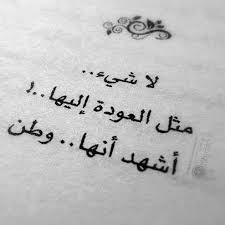 لا شيء..
مثل العودة إليها..!
أشهد أنها.. وطن